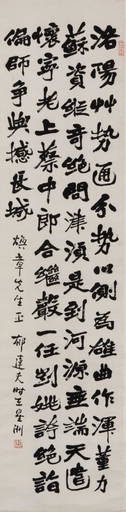 洛陽艸勢通分勢以側為雄曲作渾董力
蘇資縱奇絕問津須是到河源無端天遣
懷寧老上蔡中郎合繼聲一任劉姚誇絕詣
偏師爭與撼長城 煥章先生正 郁達夫時在星洲